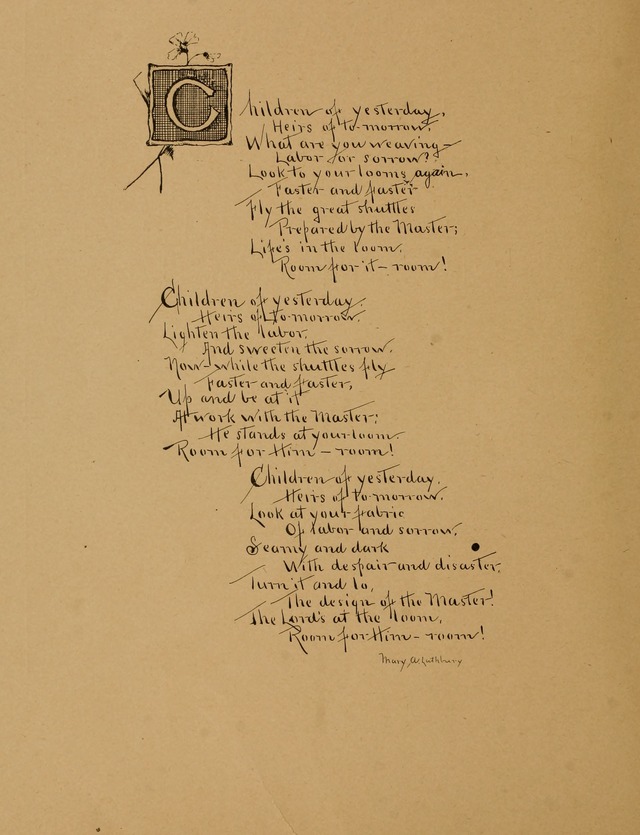 Children of yesterday,
Heirs of to-morrow,
What are you weaving—
Labor for sorrow?
Look to your looms again,
Faster and faster
Fly the great shuttles
Prepared by the Master;
Life's in the loom.
Room for it— room!
Children of yesterday.
Heirs of to-morrow.
Lighten the labor,
And sweeten the sorrow.
Now— while the shuttles fly
Faster and faster,
Up and be at it
At work with the Master;
He stands at your loom.
Room for Him — room!
Children of yesterday,
Heirs of to-morrow.
Look at your fabric
Of labor and sorrow,
Seamy and dark
With despair and disaster.
Turn it and lo,
The design of the Master!
The Lord's at the loom,
Room for Him — room!
Mary A. Lathbury